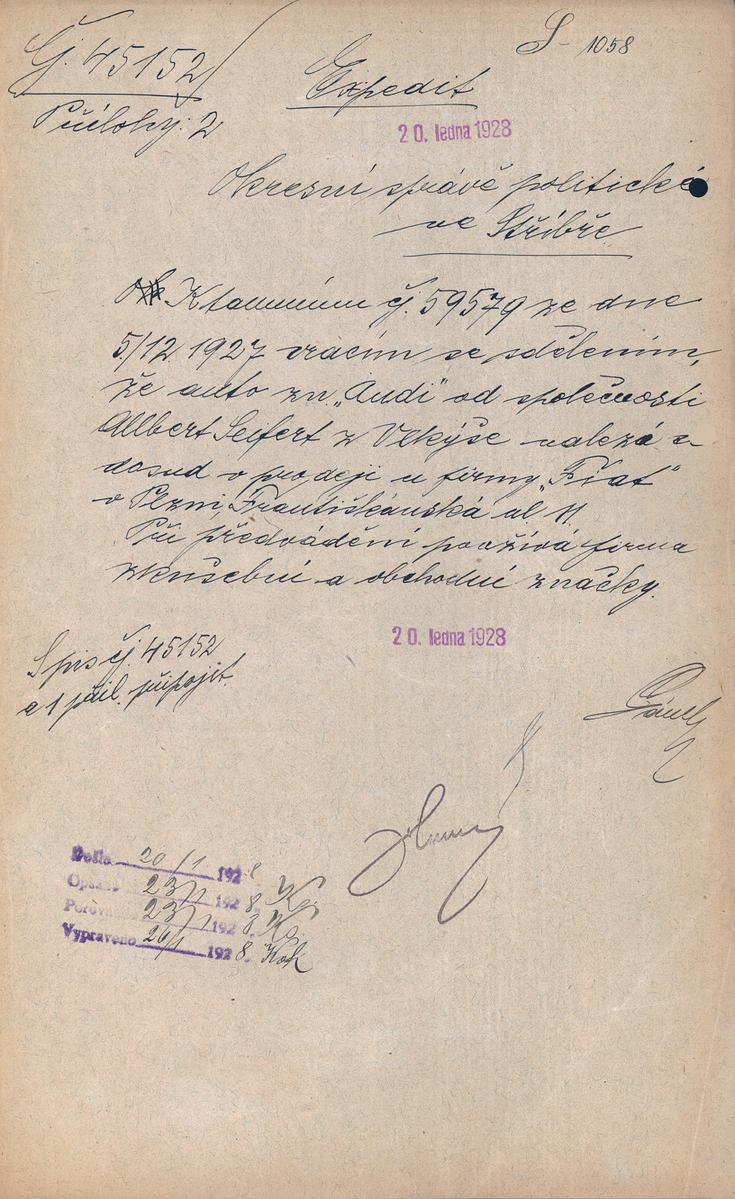 Čj. 45152
S - 1058
Expedit
Přílohy: 2
20. ledna 1928
Okresní správě politické
ve Stříbře
K tamnímu čj. 59579 ze dne
5/12 1927 vracím se sdělením,
že auto zn. „Audi" od společnosti
Allbert Seifert z Velkýše nalezá se
dosud v prodeji u firmy „Fiat"
v Plzni, Františkánská ul. 11.
Při předvádění používá firma
zkušební a obchodní značky.
20. ledna 1928
Spis čj. 45152
a 1 příl. připojit.
Došlo 20/1 1928
Opsáno 23/1 1928.
Porovnáno 23/1 1928
Vypraveno 26/1 1928.